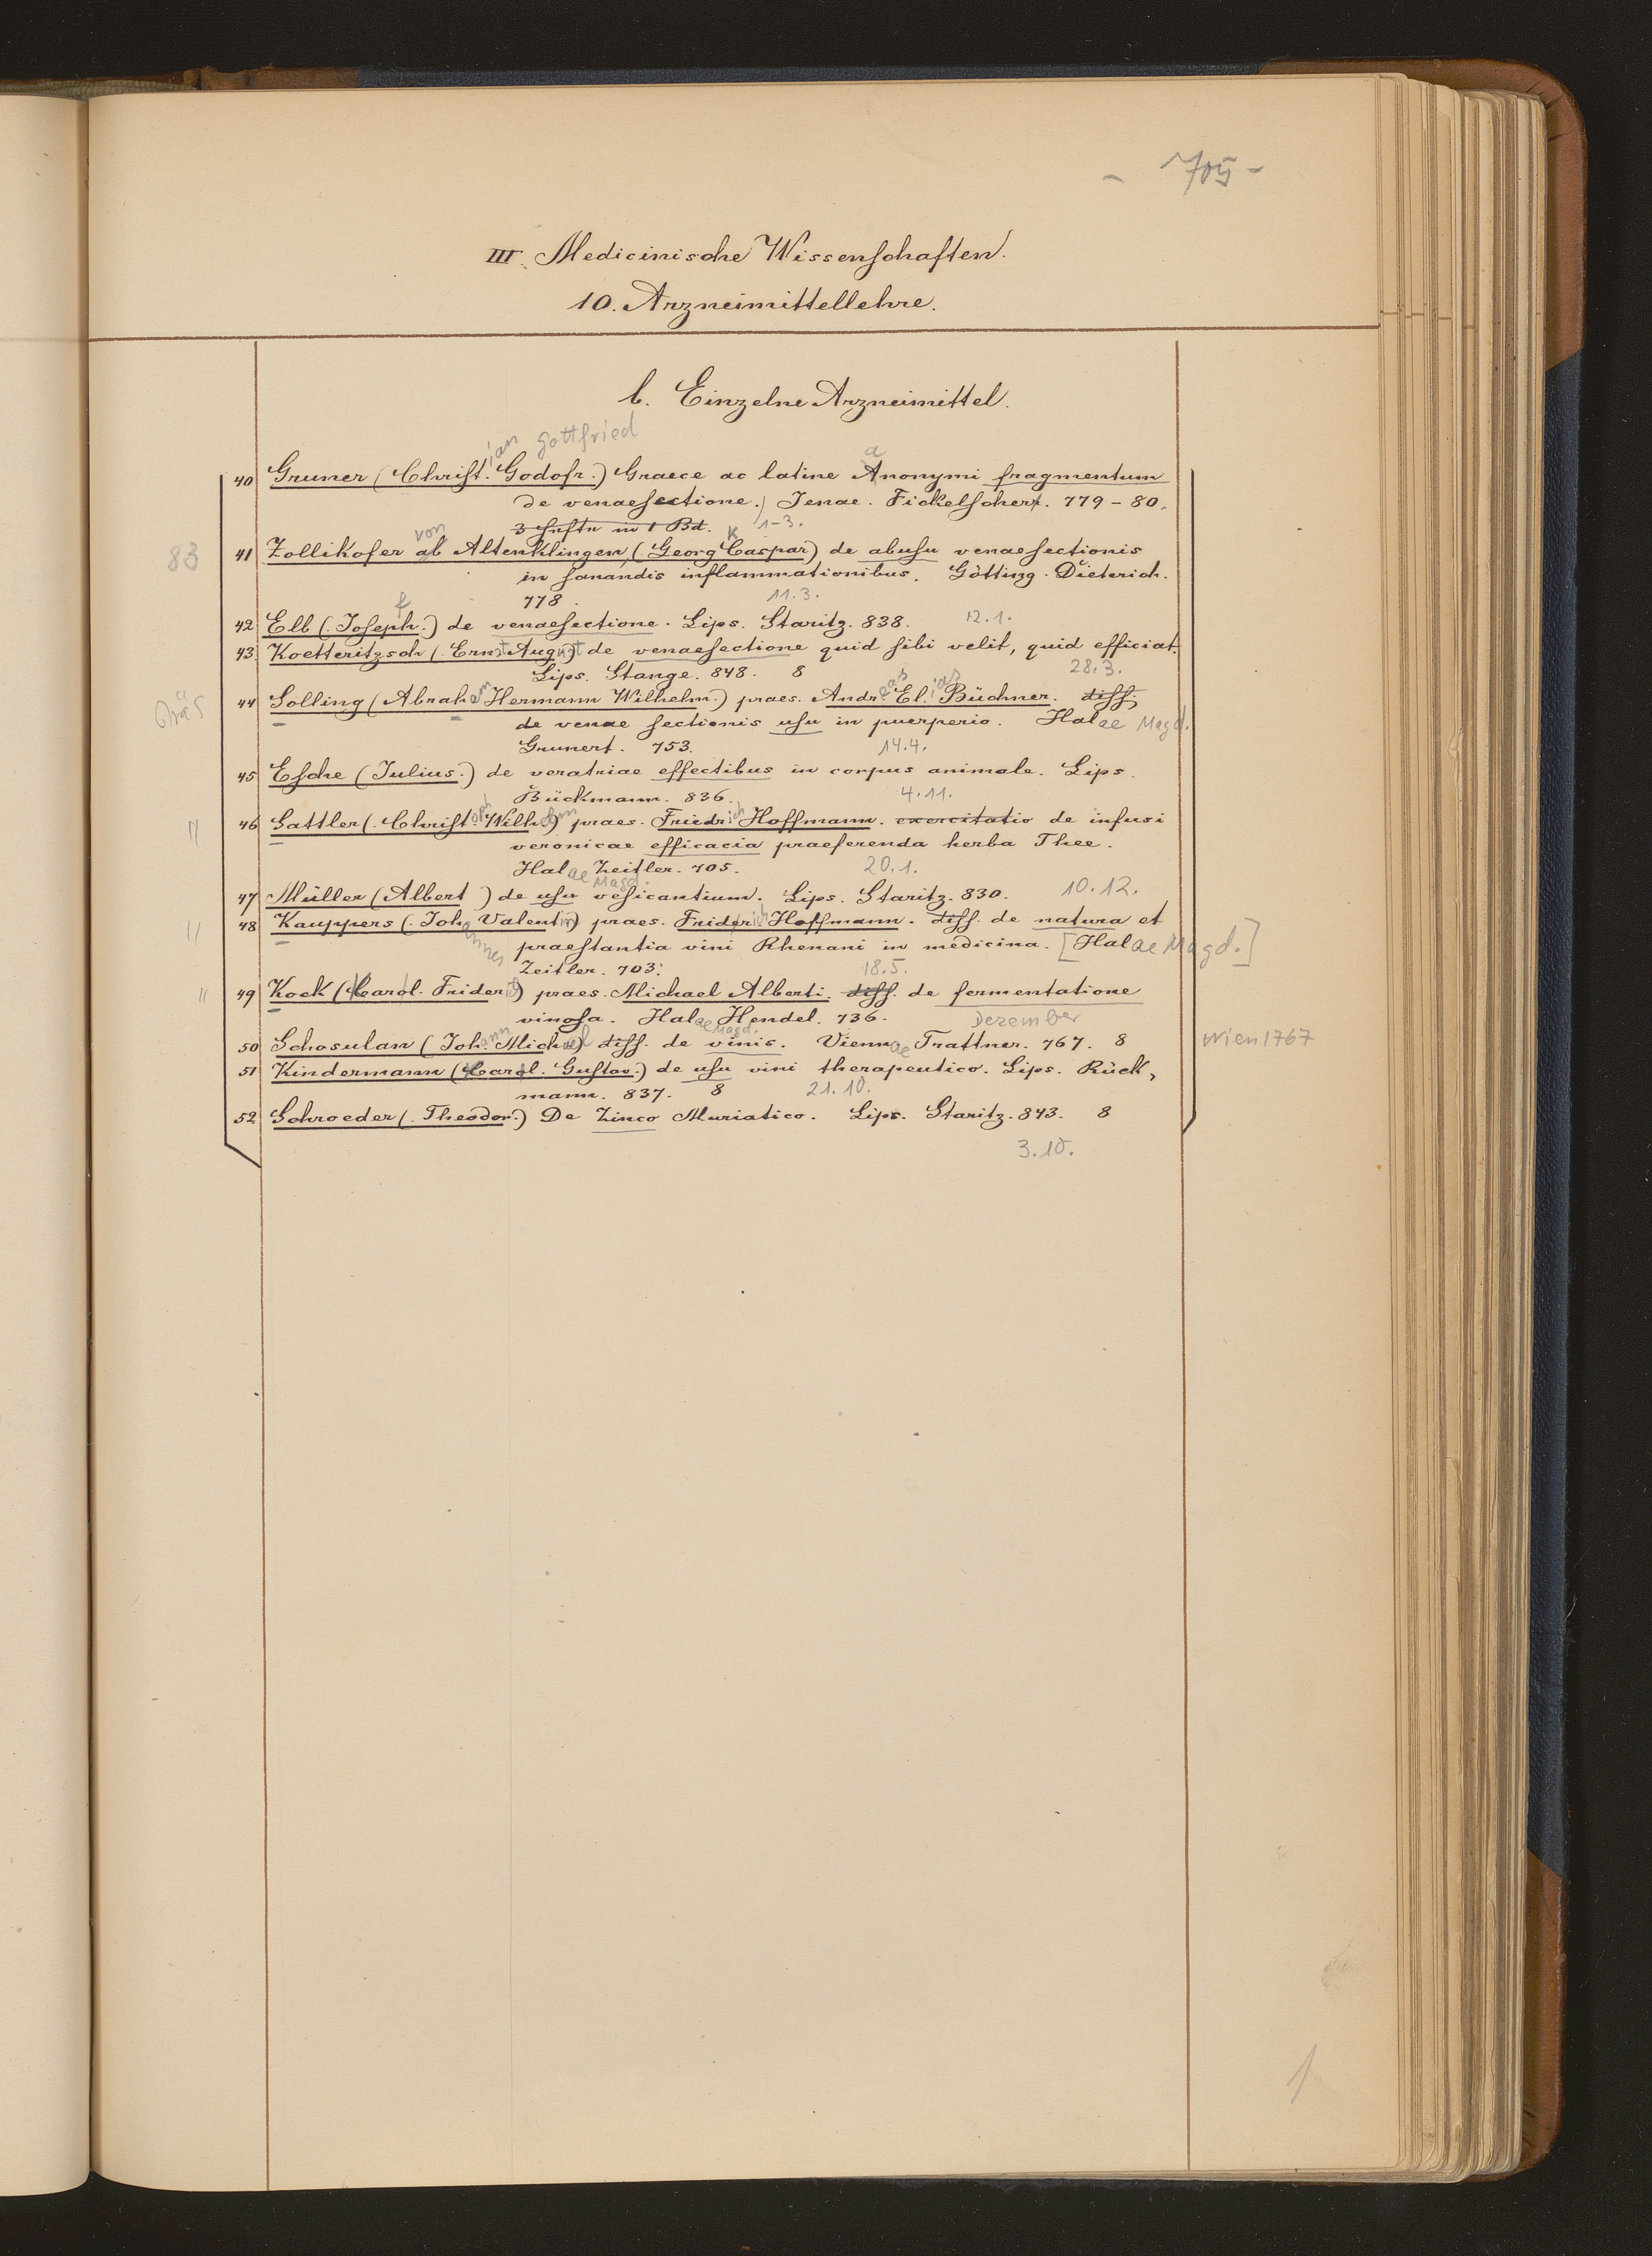 - 705 -
III. Medicinische Wissenschaften.
10. Arzneimittellehre.
b. Einzelne Arzneimittel.
ian Gottfried a
40 Gruner (Christ. Godofr.) Graece ac latine Anonymi fragmentum
de venaesectione.) Jenae. Fickelscherr. 779-80.
3 Hefte in 1 Bd. 1-3.
von K
83 41 Zollikofer ab Altenklingen, (Georg Caspar) de abusu venaesectionis
in sanandis inflammationibus. Götting. Dieterich.
778. 11.3.
f
42 Elb (Joseph.) de venaesectione. Lips. Staritz. 838. 12.1.
43 Koetteritzsch (Ernst August) de venaesectione quid sibi velit, quid efficiat.
Lips. Stange. 848. 8 28.3.
Präs 44 Solling (Abraham Hermann Wilhelm.) praes. Andreas Elias Büchner. diss.
de venae sectionis usu in puerperio. Halae Magd.
Grunert. 753. 14.4.
45 Esche (Julius.) de veratriae effectibus in corpus animale. Lips.
Bückmann. 836. 4.11.
" 46 Sattler (Christoph Wilhelm) praes. Friedrich Hoffmann. exercitatio de infusi
veronicae efficacia praeferenda herba Thee.
Halae Magd. Zeitler. 705. 20.1.
47 Müller (Albert ) de usu vesicantium. Lips. Staritz. 830. 10.12.
" 48 Kauppers (Johannes Valentin) praes. Friderich Hoffmann. diss. de natura et
praestantia vini Rhenani in medicina. [Halae Magd.]
Zeitler. 703. 18.5.
" 49 Kock (Carol. Frideric) praes. Michael Alberti. diss. de fermentatione
vinosa. Halae Magd. Hendel. 736. Dezember
50 Schosulan (Johann Michael) diss. de vinis. Viennae Trattner. 767. 8 Wien 1767
51 Kindermann (Carol. Gustav.) de usu vini therapeutico. Lips. Rück,
mann. 837. 8 21.10.
52 Schroeder (Theodor.) De Zinco Muriatico. Lips. Staritz. 843. 8
3.10.
1